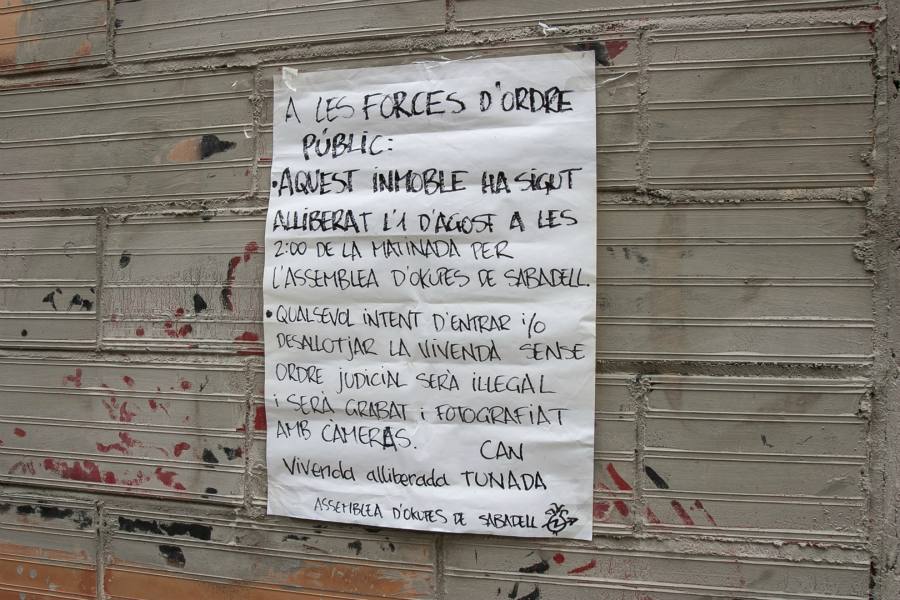 A LES FORCES D'ORDRE
PÚBLIC:
•AQUEST INMOBLE HA SIGUT
ALLIBERAT L'1 D'AGOST A LES
2:00 DE LA MATINADA PER
L'ASSEMBLEA D'OKUPES DE SABADELL.
•QUALSEVOL INTENT D'ENTRAR i/o
DESALLOTJAR LA VIVENDA SENSE
ORDRE JUDICIAL SERÀ IL·LEGAL
i SERÀ GRABAT i FOTOGRAFIAT
AMB CAMERAS.
CAN
Vivenda alliberada TUNADA
ASSEMBLEA D'OKUPES DE SABADELL